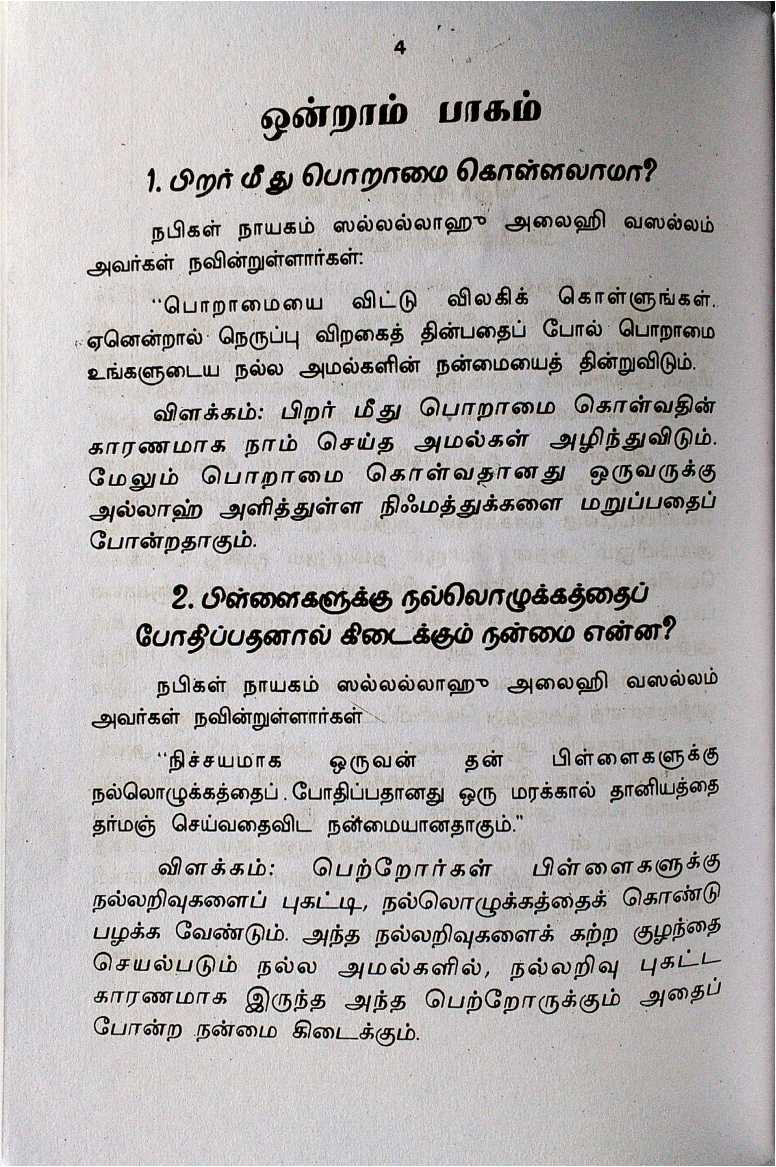 4
ஒன்றாம் பாகம்
1. பிறர் மீது பொறாமை கொள்ளலாமா?
நபிகள் நாயகம் ஸல்லல்லாஹு அலைஹி வஸல்லம்
அவர்கள் நவின்றுள்ளார்கள்:
“பொறாமையை விட்டு விலகிக் கொள்ளுங்கள்.
ஏனென்றால் நெருப்பு விறகைத் தின்பதைப் போல் பொறாமை
உங்களுடைய நல்ல அமல்களின் நன்மையைத் தின்றுவிடும்.
விளக்கம்: பிறர் மீது பொறாமை கொள்வதின்
காரணமாக நாம் செய்த அமல்கள் அழிந்துவிடும்.
மேலும் பொறாமை கொள்வதானது ஒருவருக்கு
அல்லாஹ் அளித்துள்ள நிஃமத்துக்களை மறுப்பதைப்
போன்றதாகும்.
2. பிள்ளைகளுக்கு நல்லொழுக்கத்தைப்
போதிப்பதனால் கிடைக்கும் நன்மை என்ன?
நபிகள் நாயகம் ஸல்லல்லாஹு அலைஹி வஸல்லம்
அவர்கள் நவின்றுள்ளார்கள்
“நிச்சயமாக ஒருவன் தன் பிள்ளைகளுக்கு
நல்லொழுக்கத்தைப் போதிப்பதானது ஒரு மரக்கால் தானியத்தை
தர்மஞ் செய்வதைவிட நன்மையானதாகும்."
விளக்கம்: பெற்றோர்கள் பிள்ளைகளுக்கு
நல்லறிவுகளைப் புகட்டி, நல்லொழுக்கத்தைக் கொண்டு
பழக்க வேண்டும். அந்த நல்லறிவுகளைக் கற்ற குழந்தை
செயல்படும் நல்ல அமல்களில், நல்லறிவு புகட்ட
காரணமாக இருந்த அந்த பெற்றோருக்கும் அதைப்
போன்ற நன்மை கிடைக்கும்.